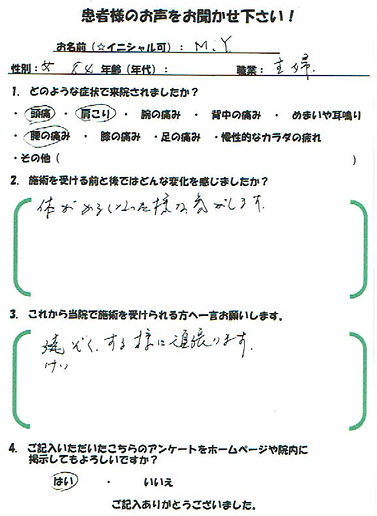 患者様のお声をお聞かせ下さい！
お名前（☆イニシャル可）： M.Y
性別：女 84 年齢（年代）： 職業： 主婦.
1. どのような症状で来院されましたか？
・頭痛 ・肩こり ・腕の痛み ・背中の痛み ・めまいや耳鳴り
・腰の痛み ・膝の痛み ・足の痛み ・慢性的なカラダの疲れ
・その他（ ）
2. 施術を受ける前と後ではどんな変化を感じましたか？
体がかるくなった様な気がします.
3. これから当院で施術を受けられる方へ一言お願いします。
ぞくする様に頑張ります.
けい
4. ご記入いただいたこちらのアンケートをホームページや院内に
掲示してもよろしいですか？
はい ・ いいえ
ご記入ありがとうございました。